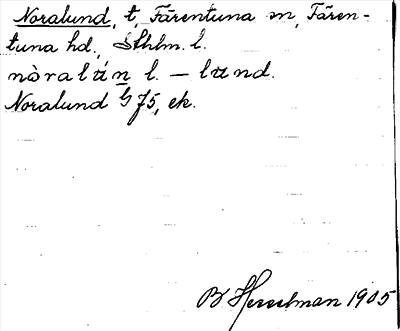 Noralund, t, Färentuna sn, Fären-
tuna hd., Sthlm. l.
nòralún l. – lund.
Noralund G 75, ek.
Hesselman 1905